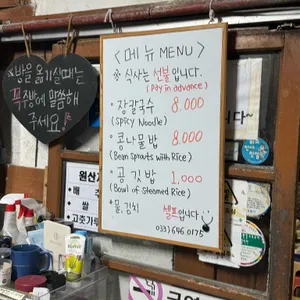 방을 옮기실때는
꼭 주방에 말씀해
주세요!
<메뉴 MENU>
※ 식사는 선불입니다.
(Pay in advance)
• 장칼국수 8.000
(Spicy Noodle)
• 콩나물밥 8.000
(Bean Sprouts with Rice)
• 공깃밥 1,000
(Bowl of Steamed Rice)
• 물, 김치 셀프입니다
033) 646.0175
원산지
배추
쌀
고춧가루